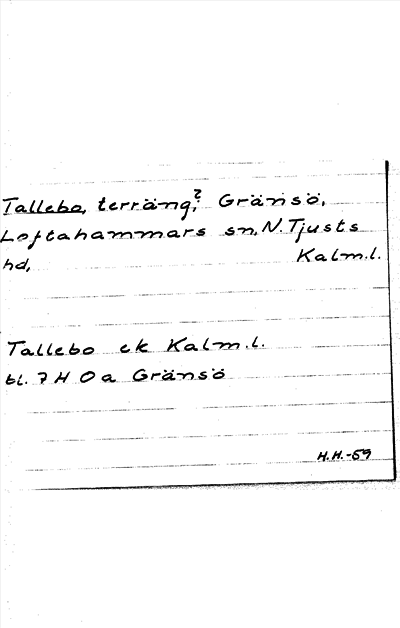 Tallebo, terräng?, Gränsö,
Loftahammars sn, N. Tjusts
hd, Kalm.l.
Tallebo ek Kalm.l.
bl. 7 H 0 a Gränsö
H.H.-59